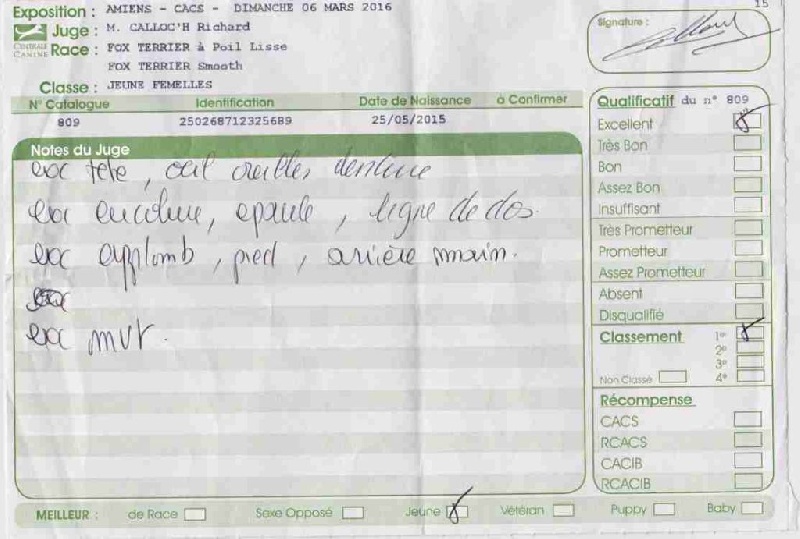 Exposition : AMIENS - CACS - DIMANCHE 06 MARS 2016
15
Juge : M. CALLOC'H Richard
Signature :
CENTRALE CANINE
Race : FOX TERRIER à Poil Lisse
FOX TERRIER Smooth
Classe : JEUNE FEMELLES
N° Catalogue Identification Date de Naissance à Confirmer
809 250268712325689 25/05/2015
Notes du Juge
exc tête, oeil oreilles, denture
exc encolure, epaule, ligne de dos.
exc applomb, pied, arrière main.
exc mvt.
Qualificatif du n° 809
Excellent
Très Bon
Bon
Assez Bon
Insuffisant
Très Prometteur
Prometteur
Assez Prometteur
Absent
Disqualifié
Classement 1e
2e
3e
Non Classé 4e
Récompense
CACS
RCACS
CACIB
RCACIB
MEILLEUR : de Race Sexe Opposé Jeune Vétéran Puppy Baby